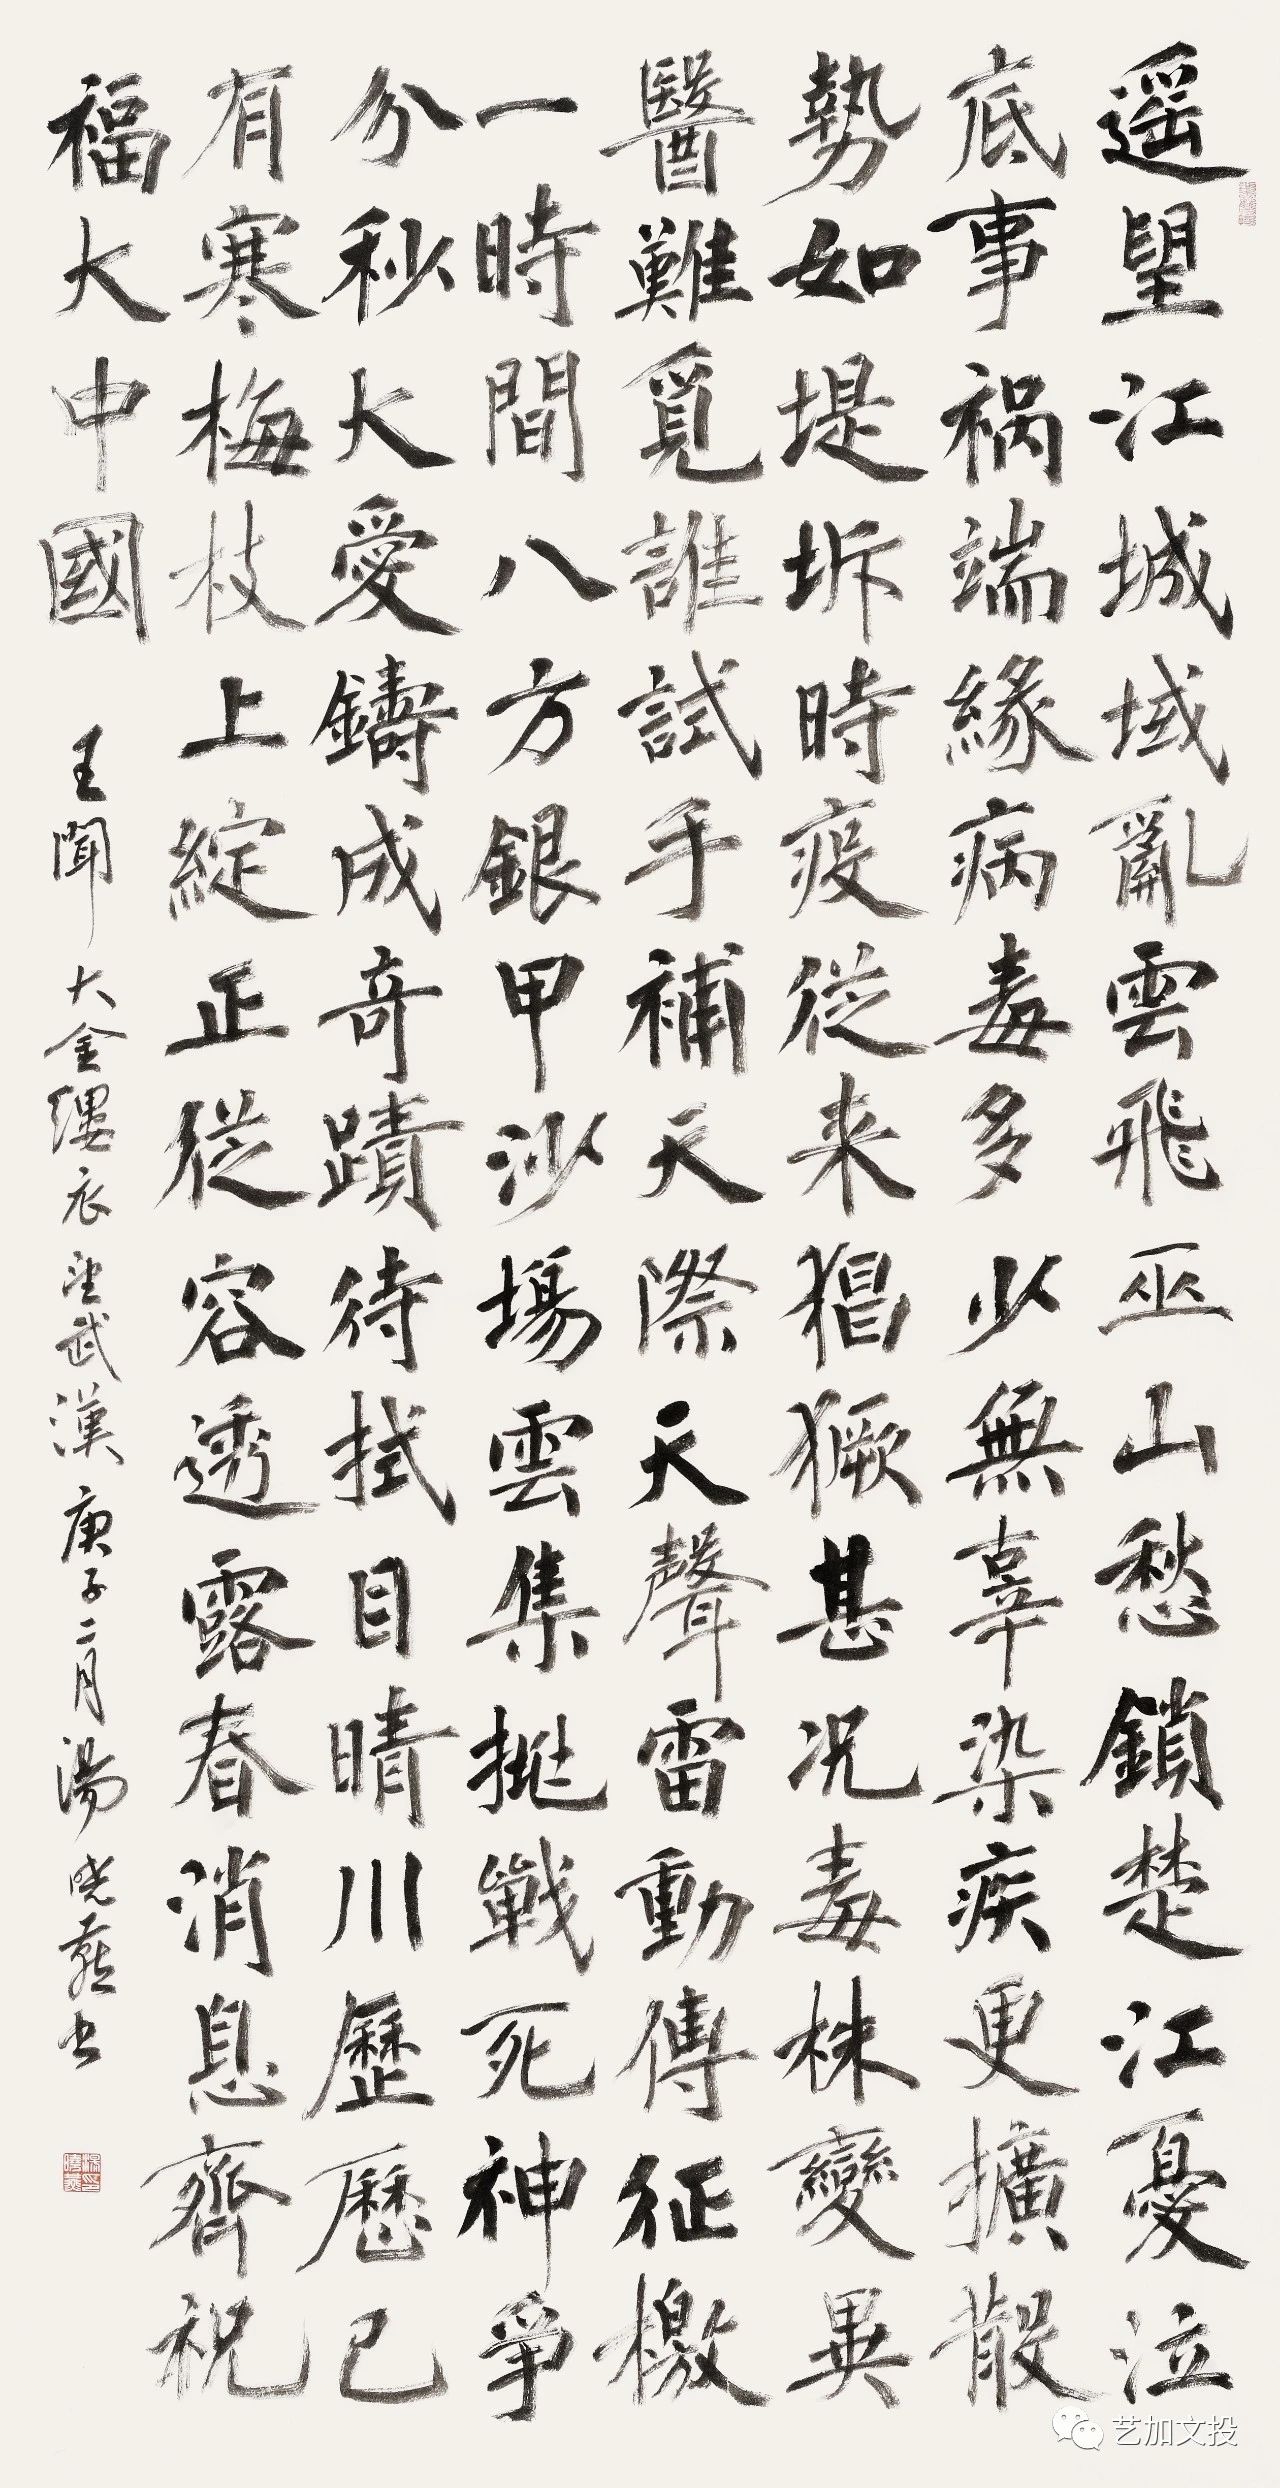 遥望江城域亂雲飛巫山愁鎖楚江憂泣
底事祸端緣病毒多少無辜染疾更擴散
勢如堤坼時疫從来猖獗甚况毒株變異
醫難覓誰試手補天際天聲雷動傳征檄
一時間八方銀甲沙場雲集挑戰死神爭
分秒大愛鑄成奇蹟待拭目晴川歷歷已
有寒梅枝上綻正從容透露春消息齊祝
福大中國
王聞大金缕衣望武漢庚子二月湯晓燕书
艺加文投